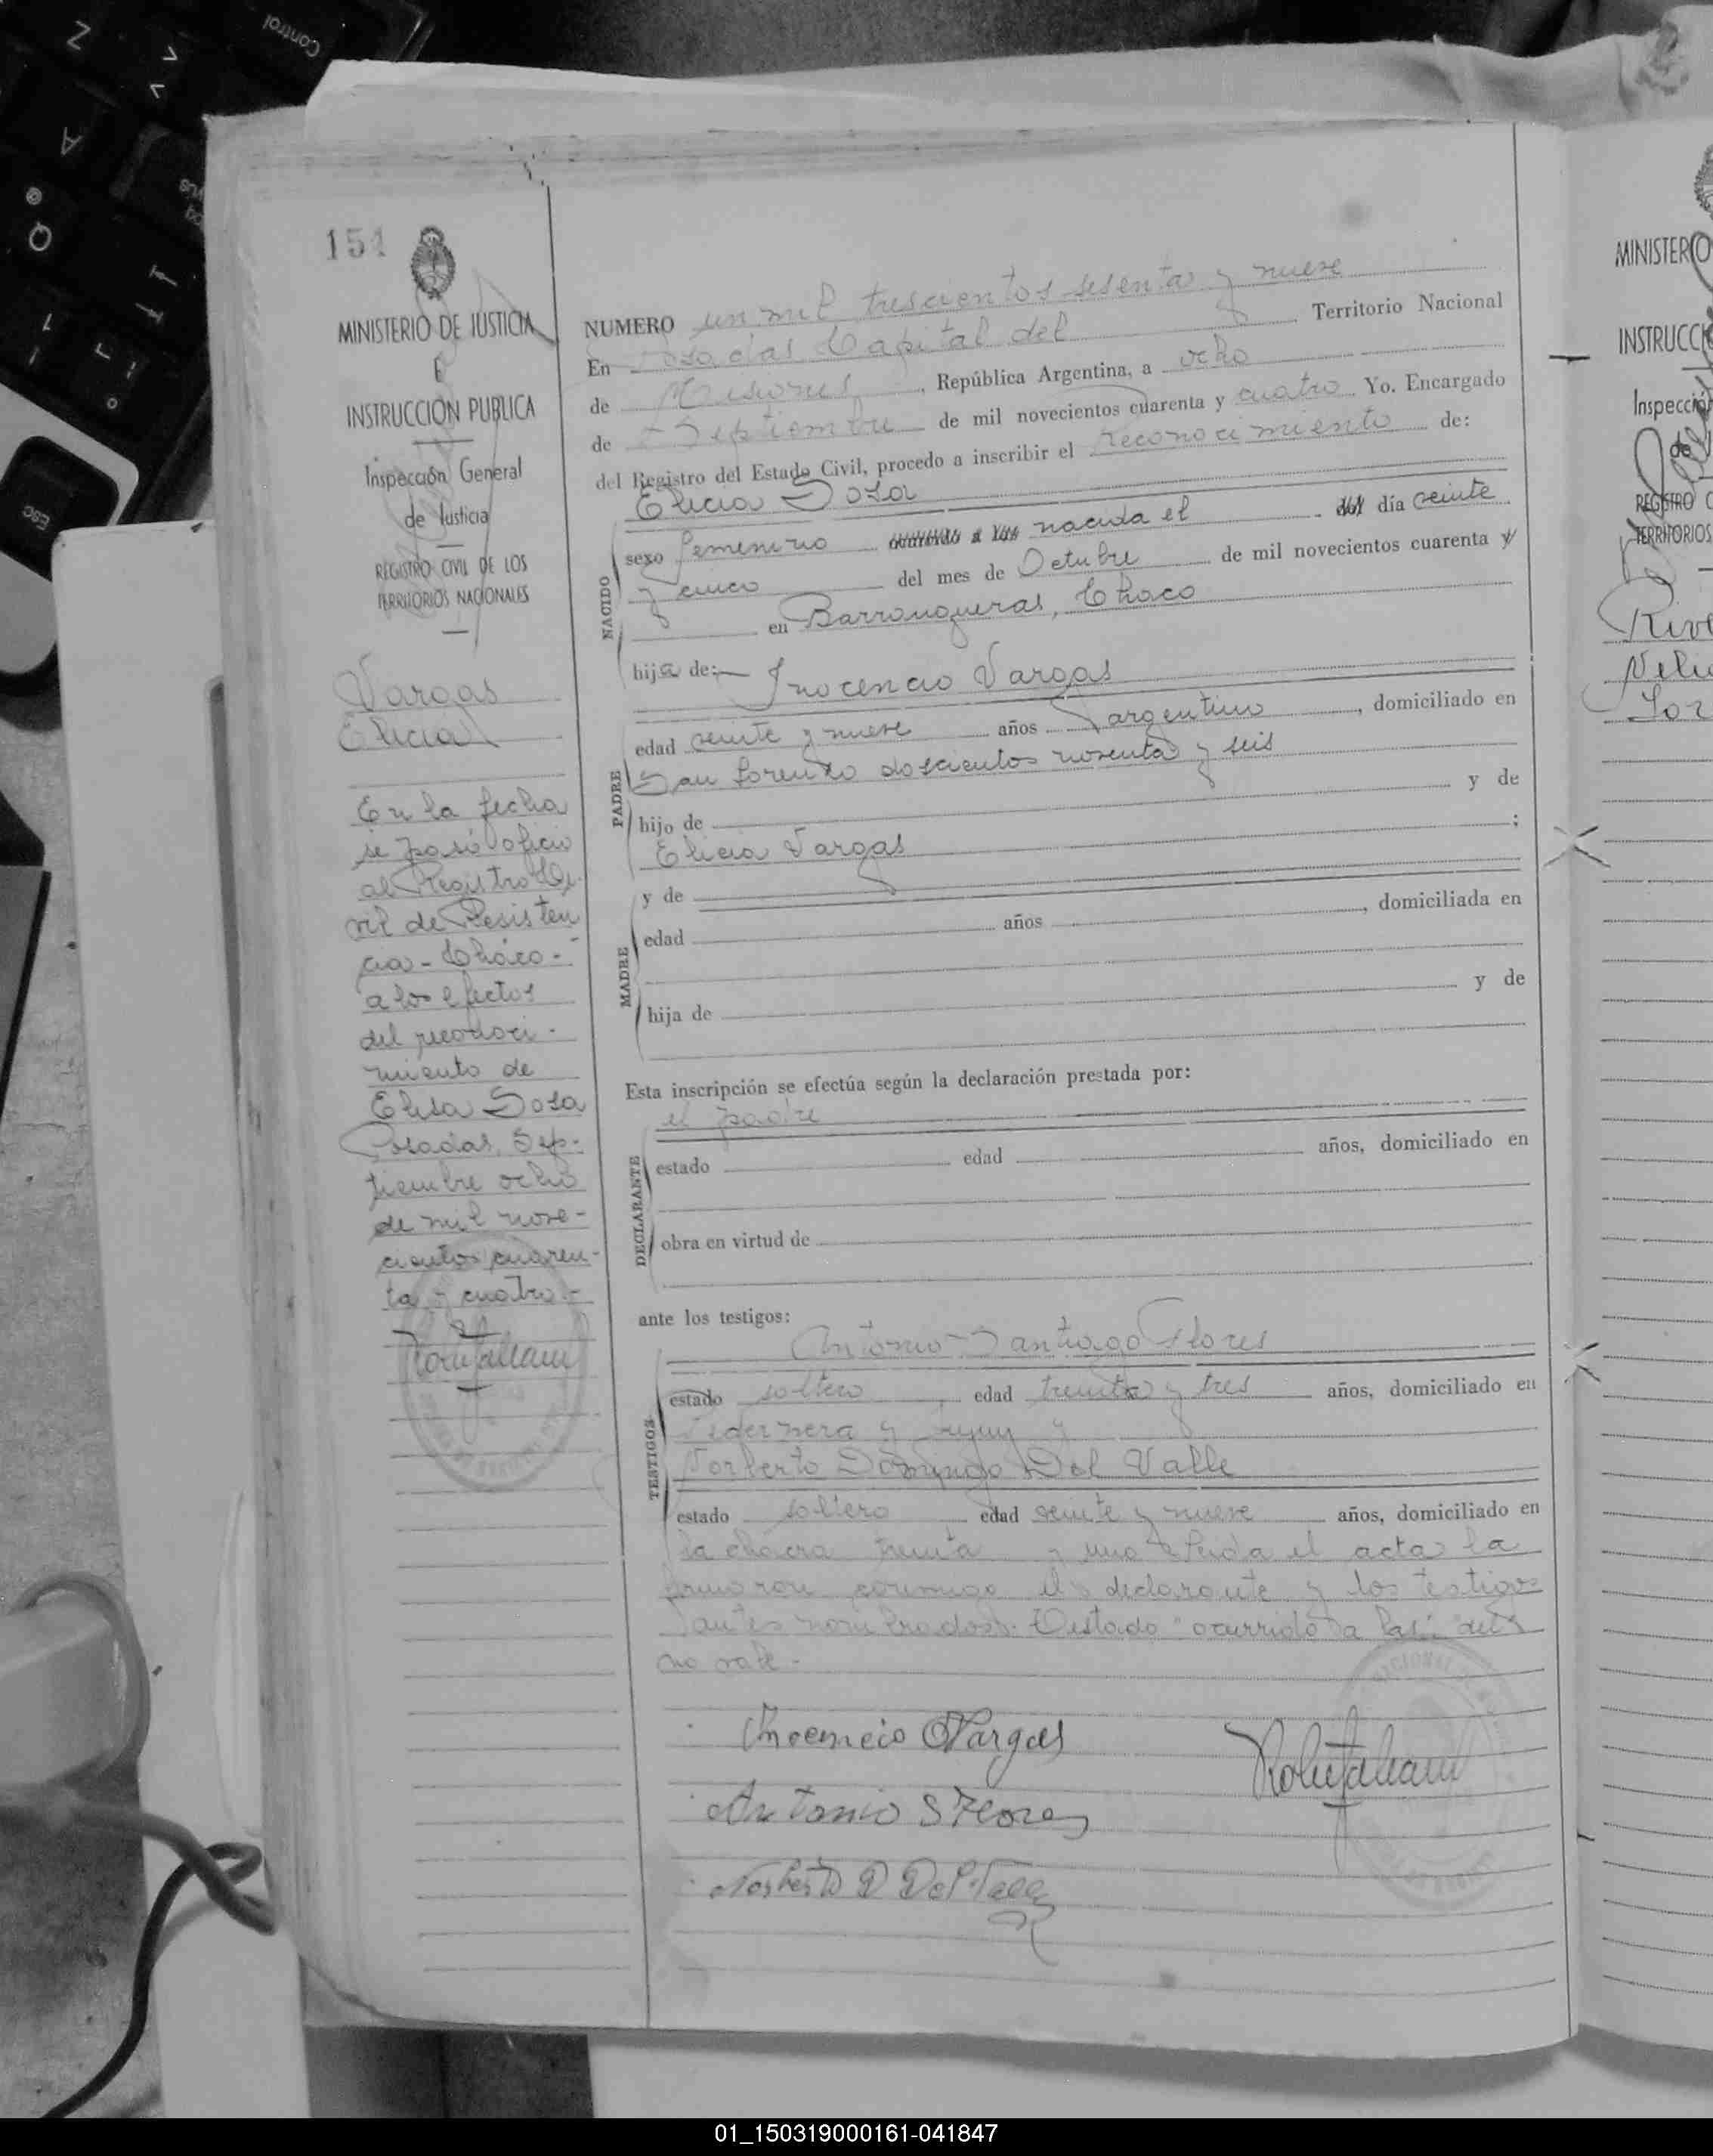 154
MINISTERIO DE JUSTICIA
E
INSTRUCCIÓN PUBLICA
Inspección General
de Justicia
REGISTRO CIVIL DE LOS
TERRITORIOS NACIONALES
Vargas
Elicia
En la fecha
se pasó oficio
al Registro Ci-
vil de Resisten
cia - Chaco -
a los efectos
del reconoci-
miento de
Elisa Sosa
Posadas, Sep-
tiembre ocho
de mil nove-
cientos cuaren-
ta y cuatro.-
NUMERO un mil trescientos sesenta y nueve
En Posadas Capital del Territorio Nacional
de Misiones, República Argentina, a ocho
de Septiembre de mil novecientos cuarenta y cuatro Yo. Encargado
del Registro del Estado Civil, procedo a inscribir el reconocimiento de:
Elicia Sosa
NACIDO
sexo femenino ocurrido a las nacida el del día veinte
y cinco del mes de Octubre de mil novecientos cuarenta y
en Barranqueras, Chaco
hija de:— Inocencio Vargas
PADRE
edad veinte y nueve años argentino, domiciliado en
San Lorenzo doscientos noventa y seis
hijo de y de
Elicia Vargas ;
y de
MADRE
edad años, domiciliada en
hija de y de
Esta inscripción se efectúa según la declaración prestada por:
el padre
DECLARANTE
estado edad años, domiciliado en
obra en virtud de
ante los testigos:
Antonio Santiago Flores
TESTIGOS
estado soltero, edad treinta y tres años, domiciliado en
Pedernera y Jujuy y
Norberto Domingo Del Valle
estado soltero edad veinte y nueve años, domiciliado en
la chacra treinta y uno Leida el acta la
firmaron conmigo el declarante y los testigos
antes nombrados. Testado "ocurrido a las" "del"
no vale.-
Inocencio Vargas
Antonio S Flores
Norberto D Del Valle
MINISTERIO
INSTRUCCI
Inspección
de
REGISTRO C
TERRITORIOS
Control
Esc
Q
A
Z
01_150319000161-041847